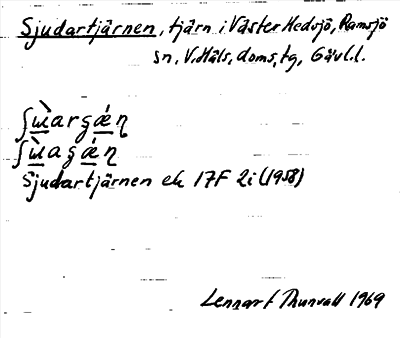 Sjudartjärnen, tjärn i Väster Hedsjö, Ramsjö
sn, V. Häls. doms, tg, Gävl. l.
ʃù̲argǽ̲ɳ
ʃù̲agǽ̲ɳ
Sjudartjärnen ek 17F 2i (1958)
Lennart Thunvall 1969